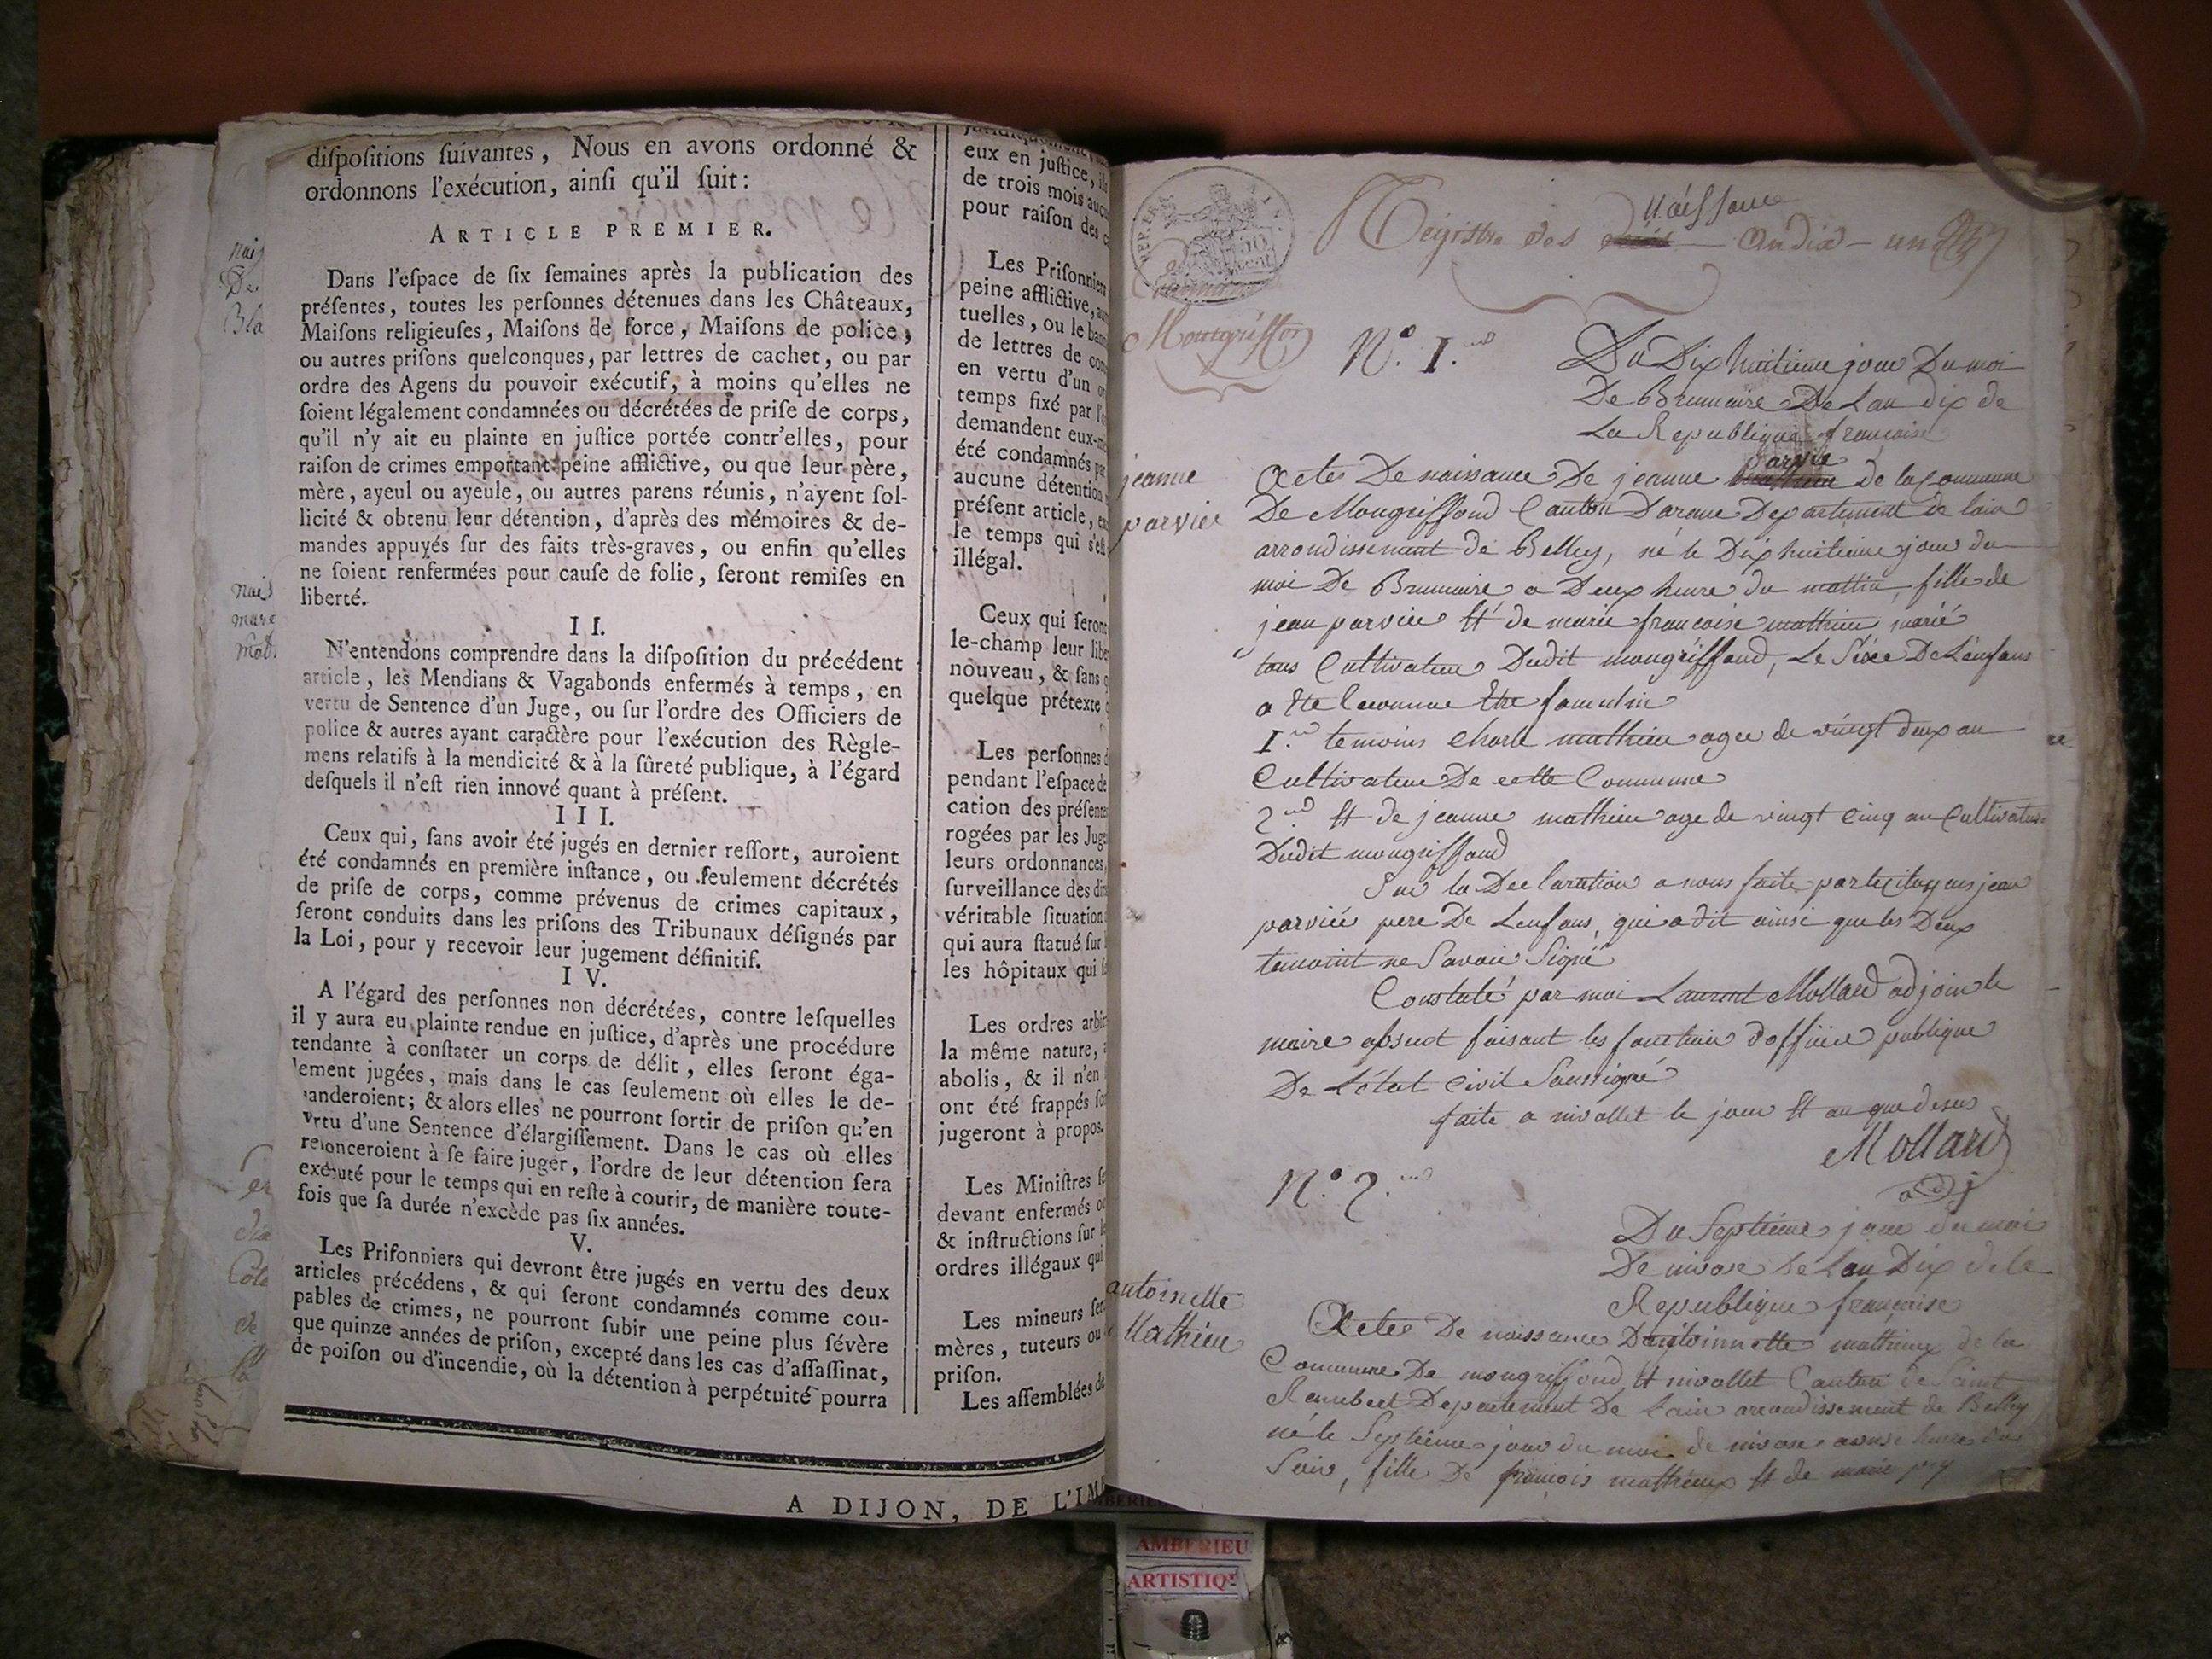 dispositions suivantes, Nous en avons ordonné &
ordonnons l'exécution, ainsi qu'il suit:
ARTICLE PREMIER.
Dans l'espace de six semaines après la publication des
présentes, toutes les personnes détenues dans les Châteaux,
Maisons religieuses, Maisons de force, Maisons de police,
ou autres prisons quelconques, par lettres de cachet, ou par
ordre des Agens du pouvoir exécutif, à moins qu'elles ne
soient légalement condamnées ou décrétées de prise de corps,
qu'il n'y ait eu plainte en justice portée contr'elles, pour
raison de crimes emportant peine afflictive, ou que leur père,
mère, ayeul ou ayeule, ou autres parens réunis, n'ayent sol-
licité & obtenu leur détention, d'après des mémoires & de-
mandes appuyés sur des faits très-graves, ou enfin qu'elles
ne soient renfermées pour cause de folie, seront remises en
liberté.
II.
N'entendons comprendre dans la disposition du précédent
article, les Mendians & Vagabonds enfermés à temps, en
vertu de Sentence d'un Juge, ou sur l'ordre des Officiers de
police & autres ayant caractère pour l'exécution des Règle-
mens relatifs à la mendicité & à la sûreté publique, à l'égard
desquels il n'est rien innové quant à présent.
III.
Ceux qui, sans avoir été jugés en dernier ressort, auroient
été condamnés en première instance, ou seulement décrétés
de prise de corps, comme prévenus de crimes capitaux,
seront conduits dans les prisons des Tribunaux désignés par
la Loi, pour y recevoir leur jugement définitif.
IV.
A l'égard des personnes non décrétées, contre lesquelles
il y aura eu plainte rendue en justice, d'après une procédure
tendante à constater un corps de délit, elles seront éga-
lement jugées, mais dans le cas seulement où elles le de-
manderoient; & alors elles ne pourront sortir de prison qu'en
vrtu d'une Sentence d'élargissement. Dans le cas où elles
renonceroient à se faire juger, l'ordre de leur détention sera
exécuté pour le temps qui en reste à courir, de manière toute-
fois que sa durée n'excède pas six années.
V.
Les Prisonniers qui devront être jugés en vertu des deux
articles précédens, & qui seront condamnés comme cou-
pables de crimes, ne pourront subir une peine plus sévère
que quinze années de prison, excepté dans les cas d'assassinat,
de poison ou d'incendie, où la détention à perpétuité pourra
eux en justice, ils
de trois mois aucu
pour raison des c
Les Prisonniers
peine afflictive, au
tuelles, ou le bann
de lettres de com
en vertu d'un or
temps fixé par l'o
demandent eux-m
été condamnés par
aucune détention
présent article, en
le temps qui s'est
illégal.
Ceux qui seront
le-champ leur libe
nouveau, & sans q
quelque prétexte q
Les personnes d
pendant l'espace de
cation des présentes
rogées par les Juge
leurs ordonnances,
surveillance des dire
véritable situation
qui aura statué sur l
les hôpitaux qui se
Les ordres arbitr
la même nature, a
abolis, & il n'en
ont été frappés so
jugeront à propos.
Les Ministres se
devant enfermés ou
& instructions sur le
ordres illégaux qui
Les mineurs sero
mères, tuteurs ou
prison.
Les assemblées de
A DIJON, DE L'IM
Naissance
Régistre des andix
Mongriffon
N.° 1.
Du Dix huitieme jour Du moi
De Brumaire De Lan dix de
La Republique francaise
jeanne
parvie
parvie
Actes De naissance De jeanne de la Commune
De Mongriffond Canton Darane Departement de lain
arrondissement de Belley, né le Dix huitieme jour du
moi De Brumaire a Deux heure du mattin, fille de
jean parvie Et de marie francoise mathieu marié
tous Cultivateur Dudit mongriffond, Le Sexe De Lenfans
a Ete Reconnue Etre famulin
1. temoins Charle mathieu agee de vingt deux an
Cultivateur De cette Commune
2. Et de jeanne mathieu age de vingt Cinq an Cultivateur
Dudit mongriffond
Sur la Declaration a nous faite par le citoyens jean
parvie pere De Lenfans, qui a dit ainsi que les Deux
temoint ne Savoir Signé
Constaté par moi Laurent Mollard adjoin de
maire absent faisant les fonction dofficie publique
De Létat Civil Soussigné
faite a nivollet le jour Et an que desus
Mollard
adj
N.° 2.
Du Septieme jour du moi
De nivose De Lan Dix de la
Republique francaise
antoinette
Mathieu
Actes De naissance Dantoinnette mathieux de la
Commune De mongriffond Et nivollet Canton de Saint
Rambert Departement De Lain arrondissement de Belley
né le Septieme jour du moi de nivose a onse heure du
Soir, fille De francois mathieux Et de marie
AMBERIEU
ARTISTIQ